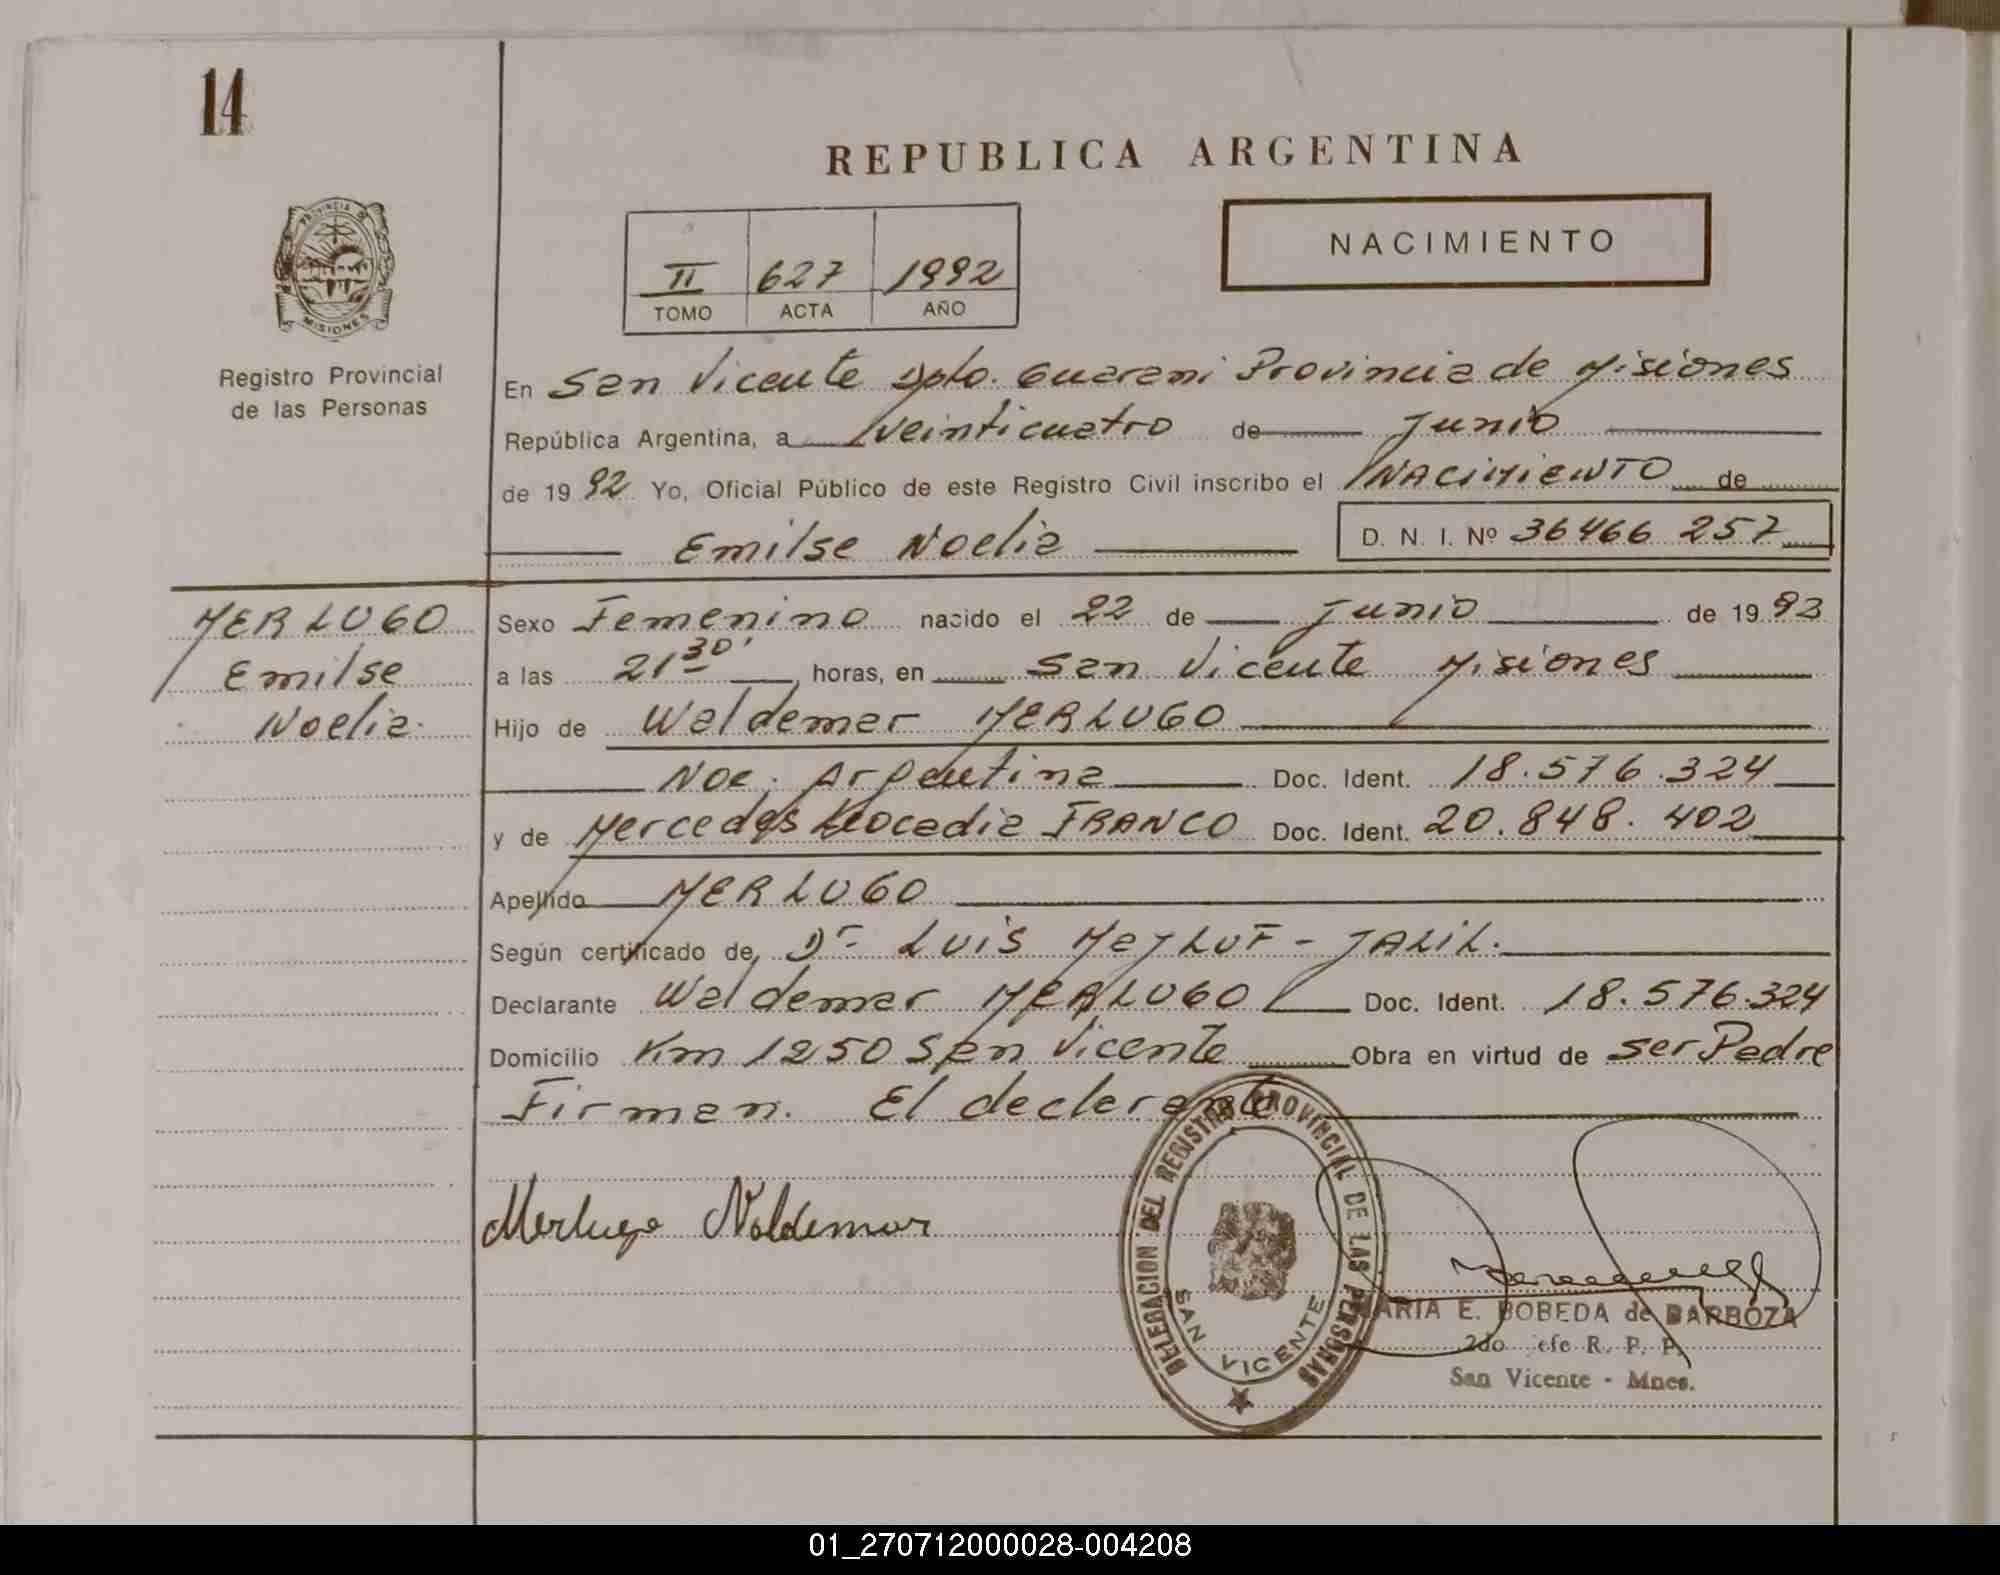 14
REPUBLICA ARGENTINA
NACIMIENTO
II 627 1992
TOMO ACTA AÑO
PROVINCIA DE
MISIONES
Registro Provincial
de las Personas
En San Vicente Dpto. Guarani Provincia de Misiones
República Argentina, a veinticuatro de Junio
de 1992 Yo, Oficial Público de este Registro Civil inscribo el NACIMIENTO de
Emilse Noelia D. N. I. Nº 36466 257
MERLUGO
Emilse
Noelia.
Sexo Femenino nacido el 22 de Junio de 1992
a las 21 30' horas, en San Vicente Misiones
Hijo de Waldemar MERLUGO
Nac. Argentina Doc. Ident. 18.576.324
y de Mercedes Leocadia FRANCO Doc. Ident. 20.848.402
Apellido MERLUGO
Según certificado de Dr. LUIS JALIL.
Declarante Waldemar MERLUGO Doc. Ident. 18.576.324
Domicilio Km 1250 San Vicente Obra en virtud de ser Padre
Firman. El declarante
Merlugo Waldemar
DELEGACION DEL REGISTRO PROVINCIAL DE LAS PERSONAS
SAN VICENTE
MARIA E. BOBEDA de BARBOZA
2do Jefe R. P. P.
San Vicente - Mnes.
01_270712000028-004208